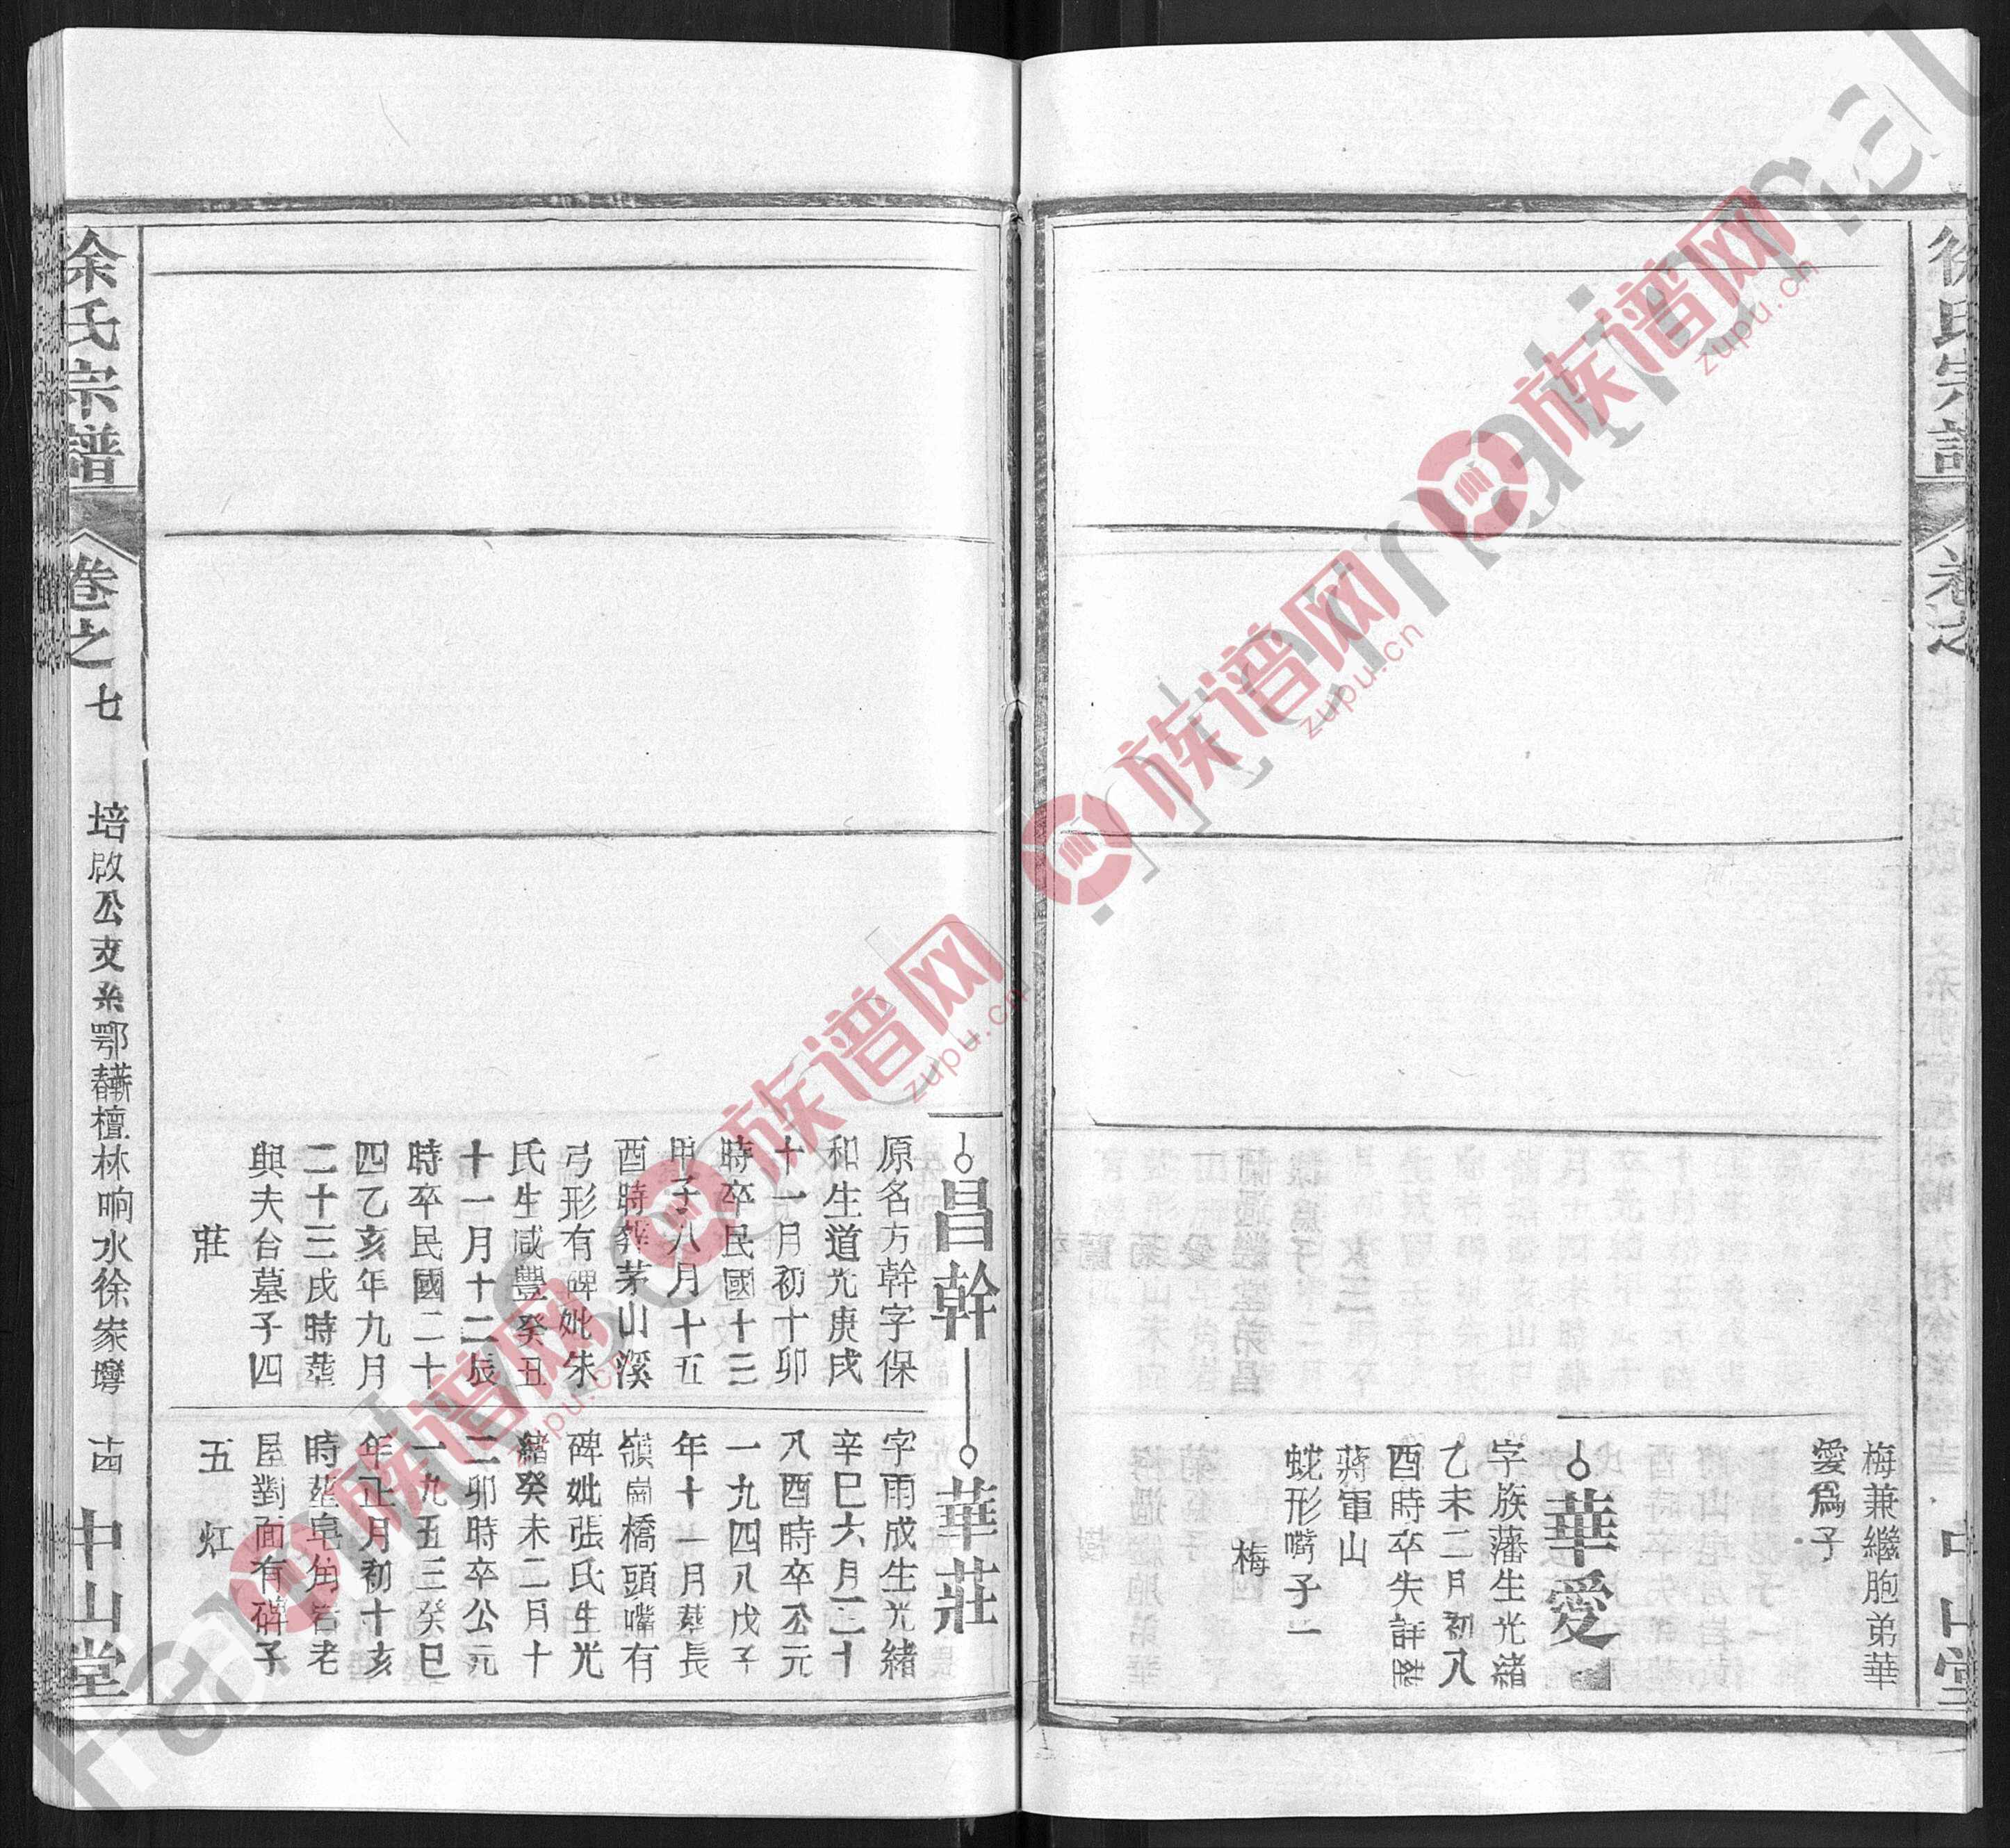 徐氏宗譜
卷之
中山堂
梅兼繼胞弟華
愛爲子
華愛
字族藩生光緒
乙未二月初八
酉時卒失詳葬
蔣軍山
蛇形嘴子一
梅
昌幹
原名方幹字保
和生道光庚戌
十一月初十卯
時卒民國十三
甲子八月十五
酉時葬茅山溪
弓形有碑妣朱
氏生咸豐癸丑
十一月十二辰
時卒民國二十
四乙亥年九月
二十三戌時葬
與夫合墓子四
莊
華莊
字雨成生光緒
辛巳六月二十
八酉時卒公元
一九四八戊子
年十一月葬長
嶺崗橋頭嘴有
碑妣張氏生光
緒癸未二月十
二卯時卒公元
一九五三癸巳
年正月初十亥
時葬皂角岩老
屋對面有碑子
五
徐氏宗譜
卷之
七
培啟公支系鄂蘄春檀林响水徐家壪
中山堂
族谱网
zupu.cn
族谱网
zupu.cn
族谱网
zupu.cn
族谱网
zupu.cn